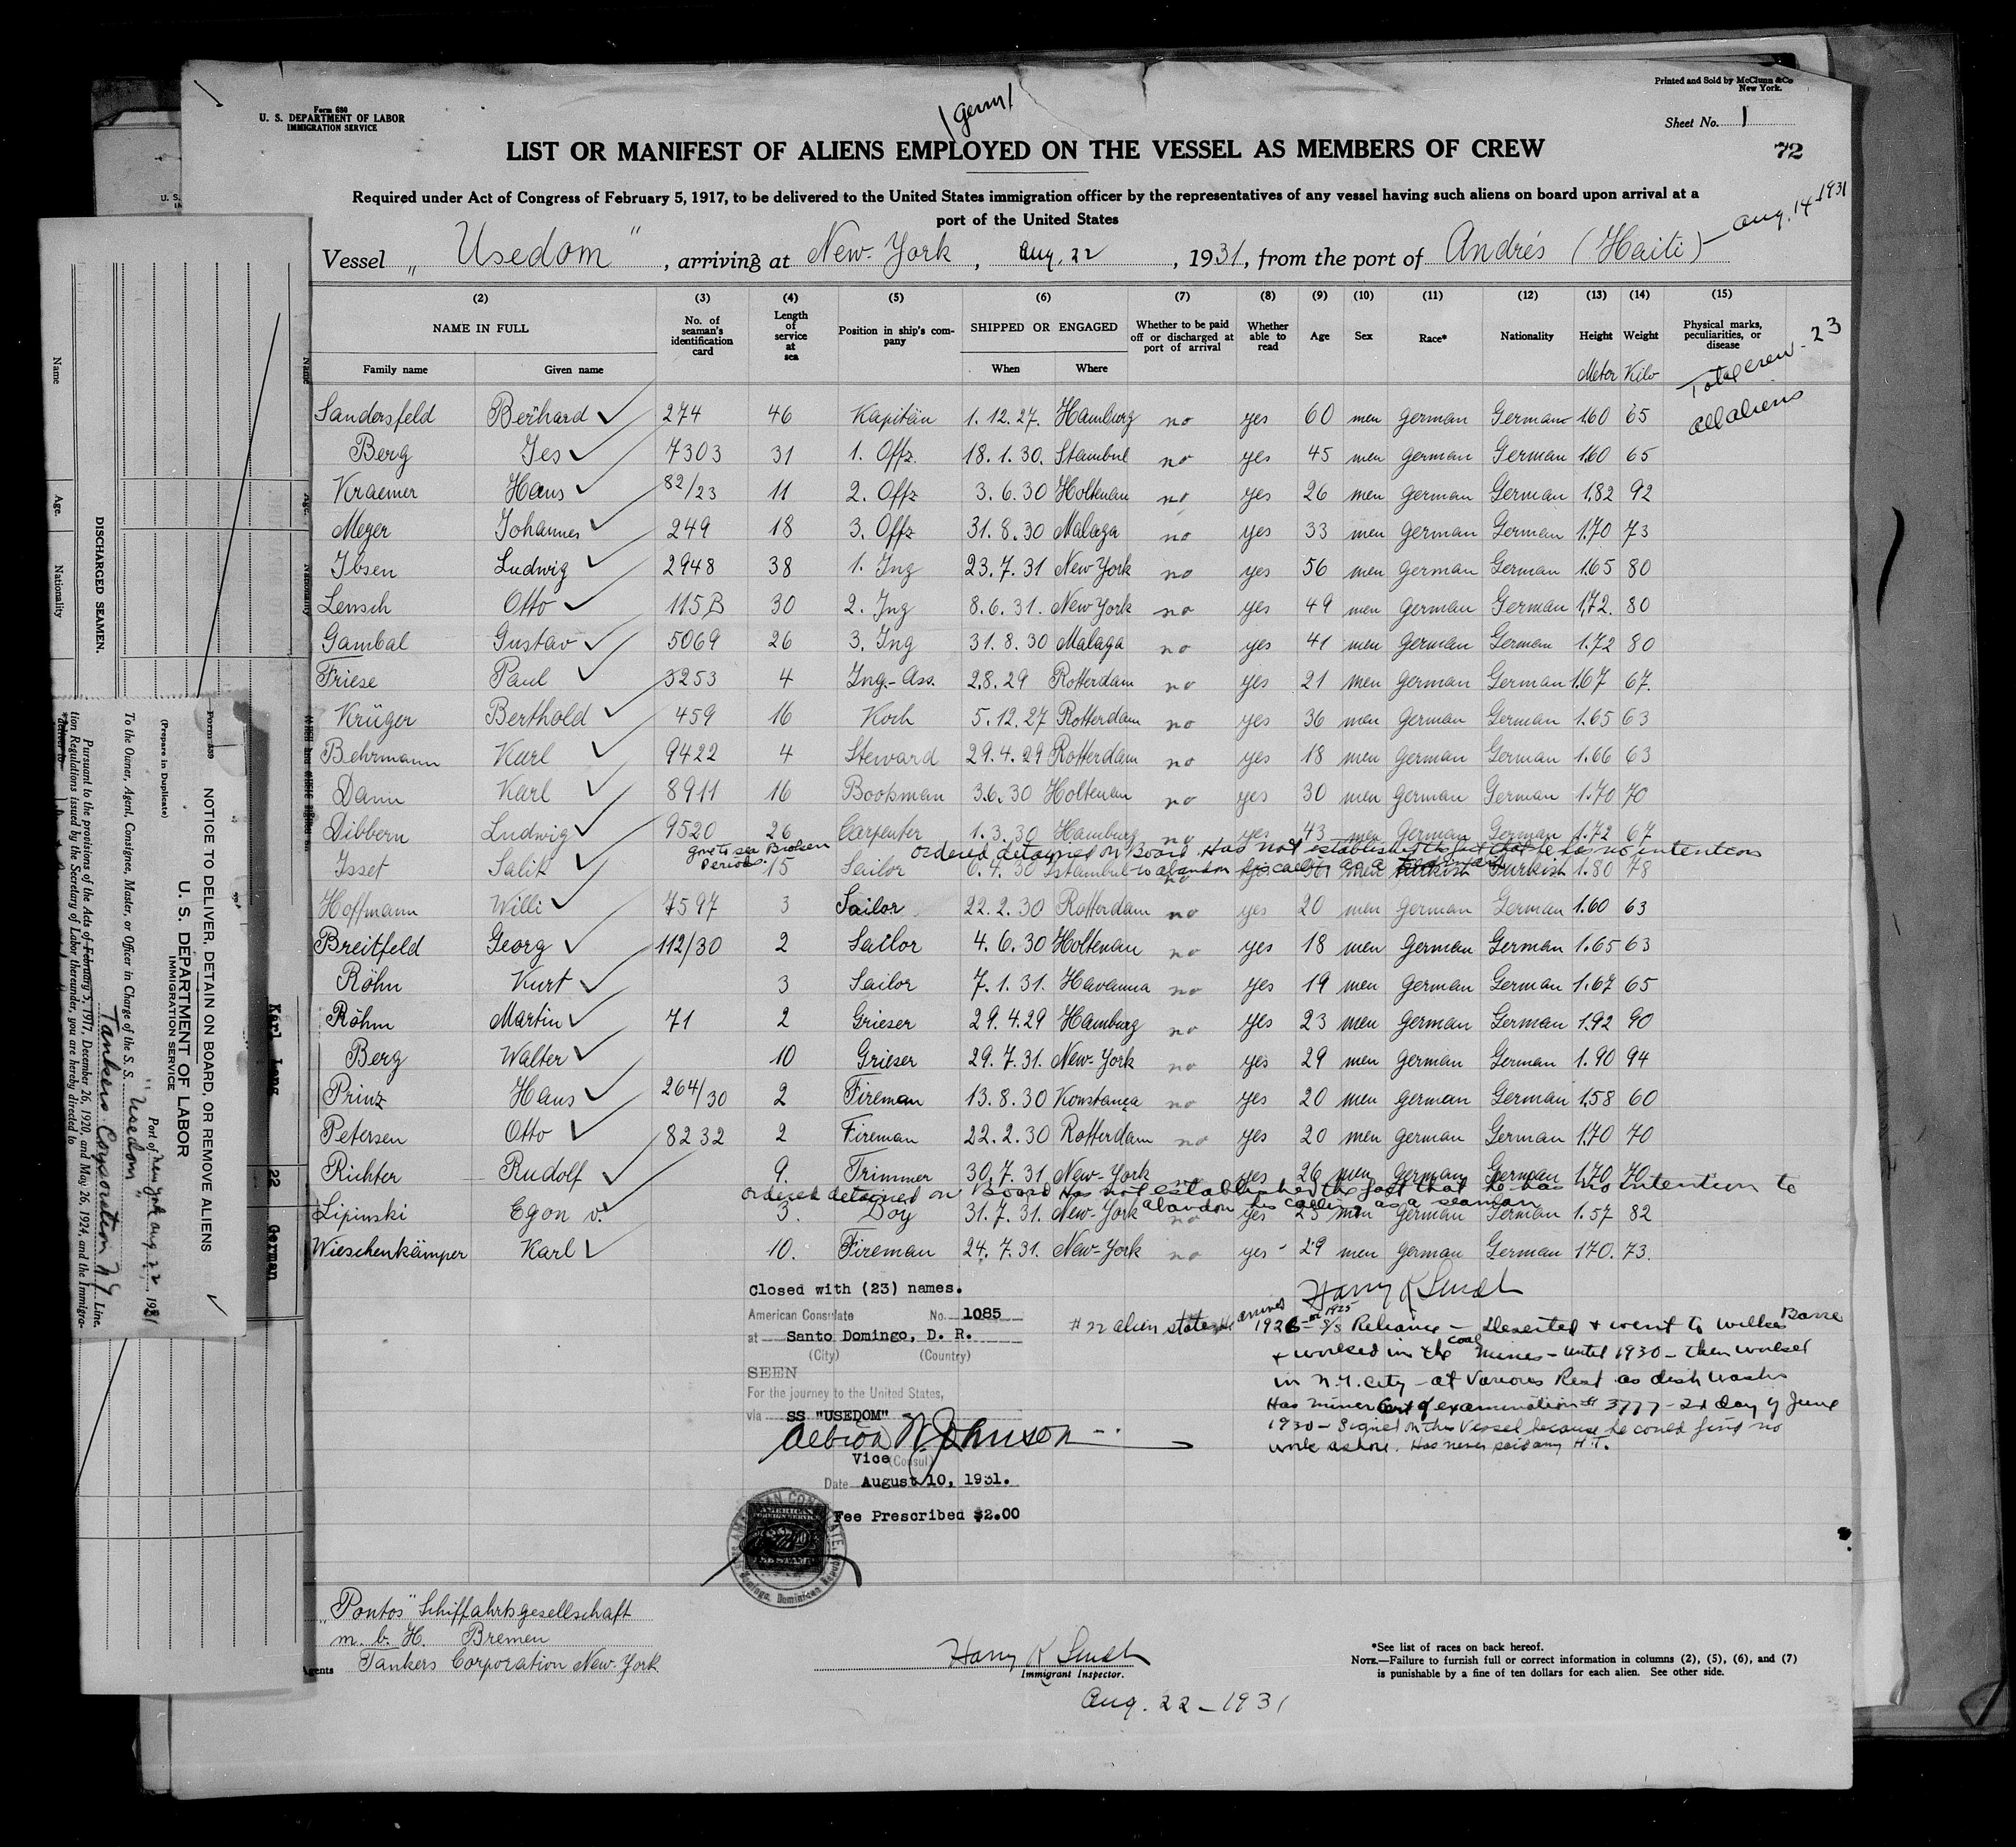 Form 680
U. S. DEPARTMENT OF LABOR
IMMIGRATION SERVICE
Printed and Sold by McClunn & Co
New York.
Sheet No. 1
72
(germ)
LIST OR MANIFEST OF ALIENS EMPLOYED ON THE VESSEL AS MEMBERS OF CREW
Required under Act of Congress of February 5, 1917, to be delivered to the United States immigration officer by the representatives of any vessel having such aliens on board upon arrival at a
port of the United States
Aug. 14 1931
Vessel „Usedom“, arriving at New-York, Aug. 22, 1931, from the port of Andrés (Haiti) —
(2) (3) (4) (5) (6) (7) (8) (9) (10) (11) (12) (13) (14) (15)
NAME IN FULL Family name Given name No. of seaman's identification card Length of service at sea Position in ship's company SHIPPED OR ENGAGED When Where Whether to be paid off or discharged at port of arrival Whether able to read Age Sex Race* Nationality Height Weight Physical marks, peculiarities, or disease
Meter Kilo
Total crew - 23
all aliens
Sandersfeld Berhard 274 46 Kapitän 1.12.27. Hamburg no yes 60 men german German 1.60 65
Berg Jes 7303 31 1. Offz. 18.1.30. Stambul no yes 45 men german German 1.60 65
Kraemer Hans 82/23 11 2. Offz 3.6.30 Holtenau no yes 26 men german German 1.82 92
Meyer Johannes 249 18 3. Offz 31.8.30 Malaga no yes 33 men german German 1.70 73
Ibsen Ludwig 2948 38 1. Ing 23.7.31 New York no yes 56 men german German 1.65 80
Lensch Otto 115B 30 2. Ing 8.6.31. New York no yes 49 men german German 1.72. 80
Gambal Gustav 5069 26 3. Ing 31.8.30 Malaga no yes 41 men german German 1.72 80
Friese Paul 3253 4 Ing.-Ass. 2.8.29 Rotterdam no yes 21 men german German 1.67 67.
Krüger Berthold 459 16 Koch 5.12.27 Rotterdam no yes 36 men german German 1.65 63
Behrmann Karl 9422 4 Steward 29.4.29 Rotterdam no yes 18 men german German 1.66 63
Dann Karl 8911 16 Bootsman 3.6.30 Holtenau no yes 30 men german German 1.70 70
Dibbern Ludwig 9520 26 Carpenter 1.3.30 Hamburg no yes 43 men German German 1.72 67
gone to sea Broken Periods. ordered detained on Board Has not established the fact that he has no intention
to abandon his calling as a seaman
Isset Salik 15 Sailor 6.4.30 Istambul no men turkish Turkish 1.80 78
Hoffmann Willi 7597 3 Sailor 22.2.30 Rotterdam no yes 20 men german German 1.60 63
Breitfeld Georg 112/30 2 Sailor 4.6.30 Holtenau no yes 18 men german German 1.65 63
Röhn Kurt 3 Sailor 7.1.31. Havanna no yes 19 men german German 1.67 65
Röhm Martin 71 2 Grieser 29.4.29 Hamburg no yes 23 men german German 1.92 90
Berg Walter 10 Grieser 29.7.31. New-York no yes 29 men german German 1.90 94
Prinz Hans 264/30 2 Fireman 13.8.30 Konstanza no yes 20 men german German 1.58 60
Petersen Otto 8232 2 Fireman 22.2.30 Rotterdam no yes 20 men german German 1.70 70
Richter Rudolf 9. Trimmer 30.7.31 New-York yes 26 men german German 1.70 70
ordered detained on Board Has not established the fact that he has no intention to
abandon his calling as a seaman
Lipinski Egon v. 3. Boy 31.7.31. New-York no yes 23 men german German 1.57 82
Wieschenkämper Karl 10. Fireman 24.7.31. New-York no yes 29 men german German 1.70. 73.
Closed with (23) names.
American Consulate No. 1085
at Santo Domingo, D. R.
(City) (Country)
SEEN
For the journey to the United States,
via SS "USEDOM"
Albion W. Johnson
Vice (Consul)
Date August 10, 1931.
Fee Prescribed $2.00
AMERICAN CONSULATE
Santo Domingo, Dominican Republic
AMERICAN FOREIGN SERVICE
FEE STAMP
Harry K Smith
#22 alien states he arrived 1926 - or 1925 S/S Reliance - Deserted & went to Wilkes Barre
& worked in the coal mines - until 1930 - then worked
in N.Y. City - at Various Rest as dish washer
Has miner Cert of examination # 3777 - 2d day of June
1930 - Signed on this Vessel because he could find no
work ashore. Has never paid any H.T.
„Pontos“ Schiffahrtsgesellschaft
m. b. H. Bremen
Agents Tankers Corporation New-York
Harry K Smith
Immigrant Inspector.
Aug. 22 - 1931
*See list of races on back hereof.
NOTE.—Failure to furnish full or correct information in columns (2), (5), (6), and (7)
is punishable by a fine of ten dollars for each alien. See other side.
Name Age. Nationality
DISCHARGED SEAMEN.
Name Age. Nationality
Karl Lang 22 German
Form 539
NOTICE TO DELIVER, DETAIN ON BOARD, OR REMOVE ALIENS
U. S. DEPARTMENT OF LABOR
IMMIGRATION SERVICE
(Prepare in Duplicate)
Port of New York Aug. 22, 1931
To the Owner, Agent, Consignee, Master, or Officer in Charge of the S. S. "Usedom"
Tankers Corporation NY Line.
Pursuant to the provisions of the Acts of February 5, 1917, December 26, 1920, and May 26, 1924, and the Immigra-
tion Regulations issued by the Secretary of Labor thereunder, you are hereby directed to
*deliver to